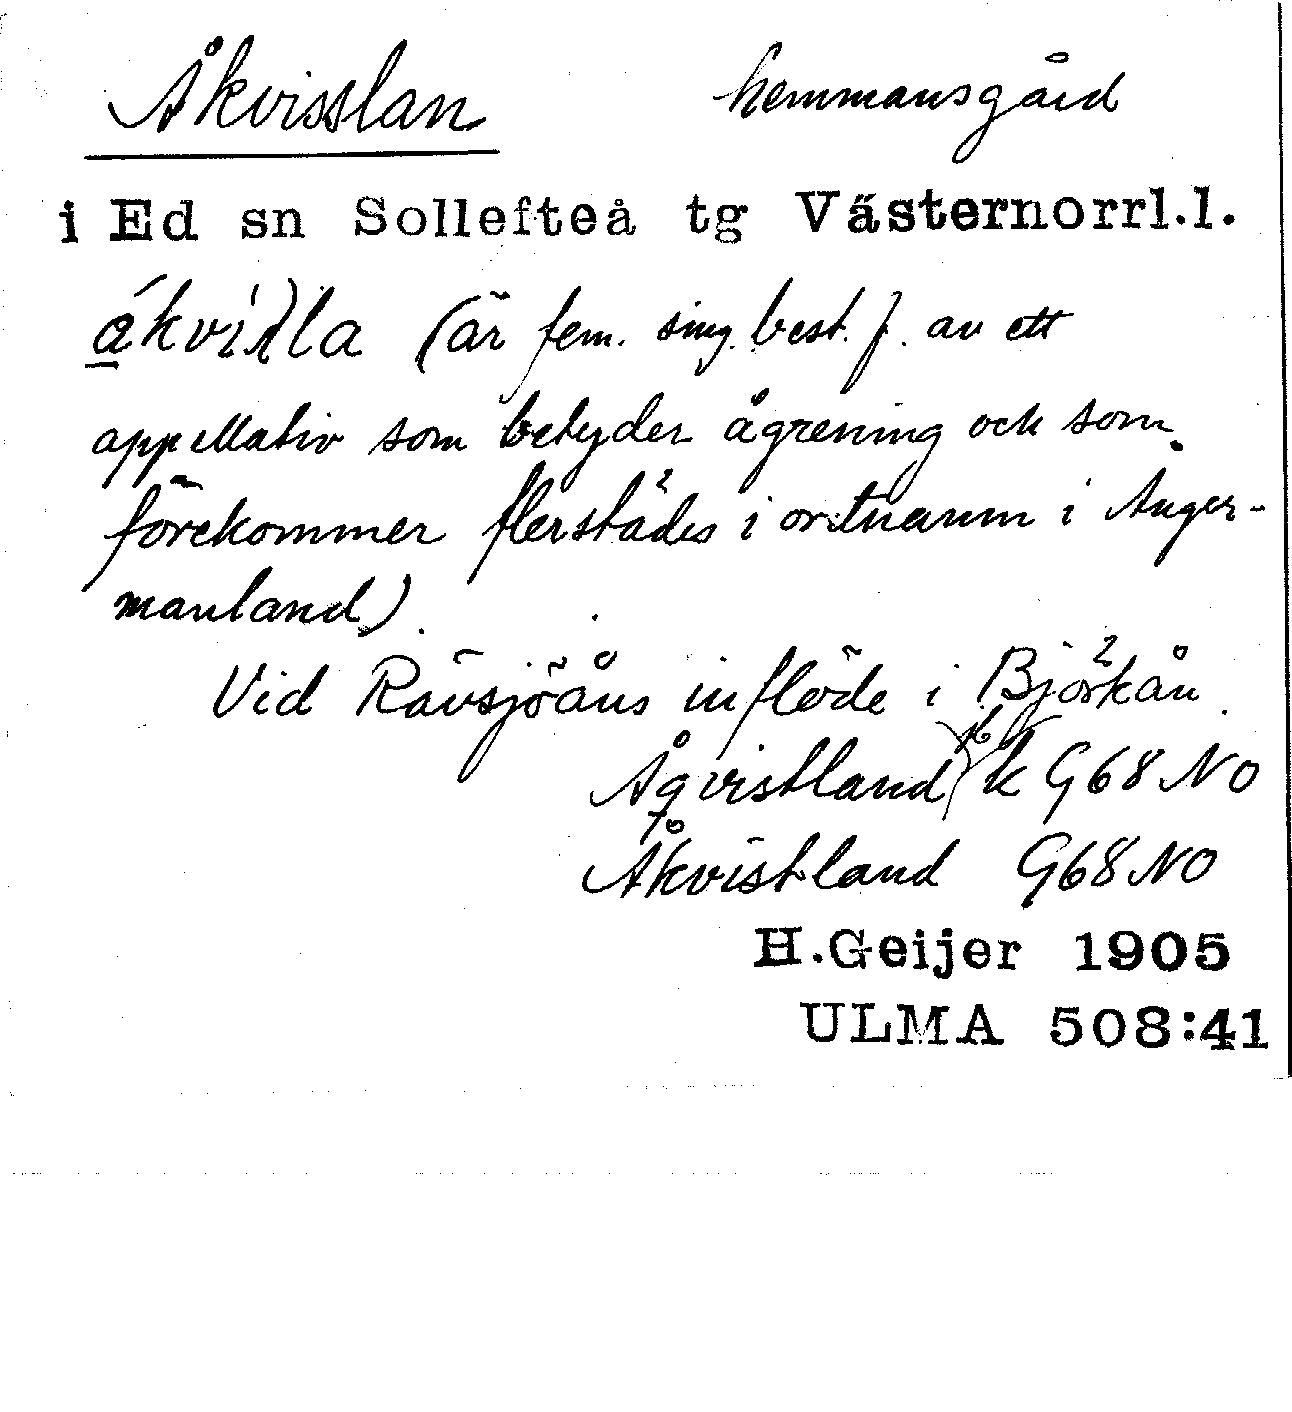 Åkvisslan hemmansgård
i Ed sn Sollefteå tg Västernorrl.l.
(är fem. sing. best. f. av ett
appellativ som betyder ågrening och som
förekommer flerstädes i ortnamn i Ånger-
manland).
Vid Rävsjöåns inflöde i Björkån.
Åqvistland k G68 NO
Åkvistland G68 NO
H.Geijer 1905
ULMA 508:41